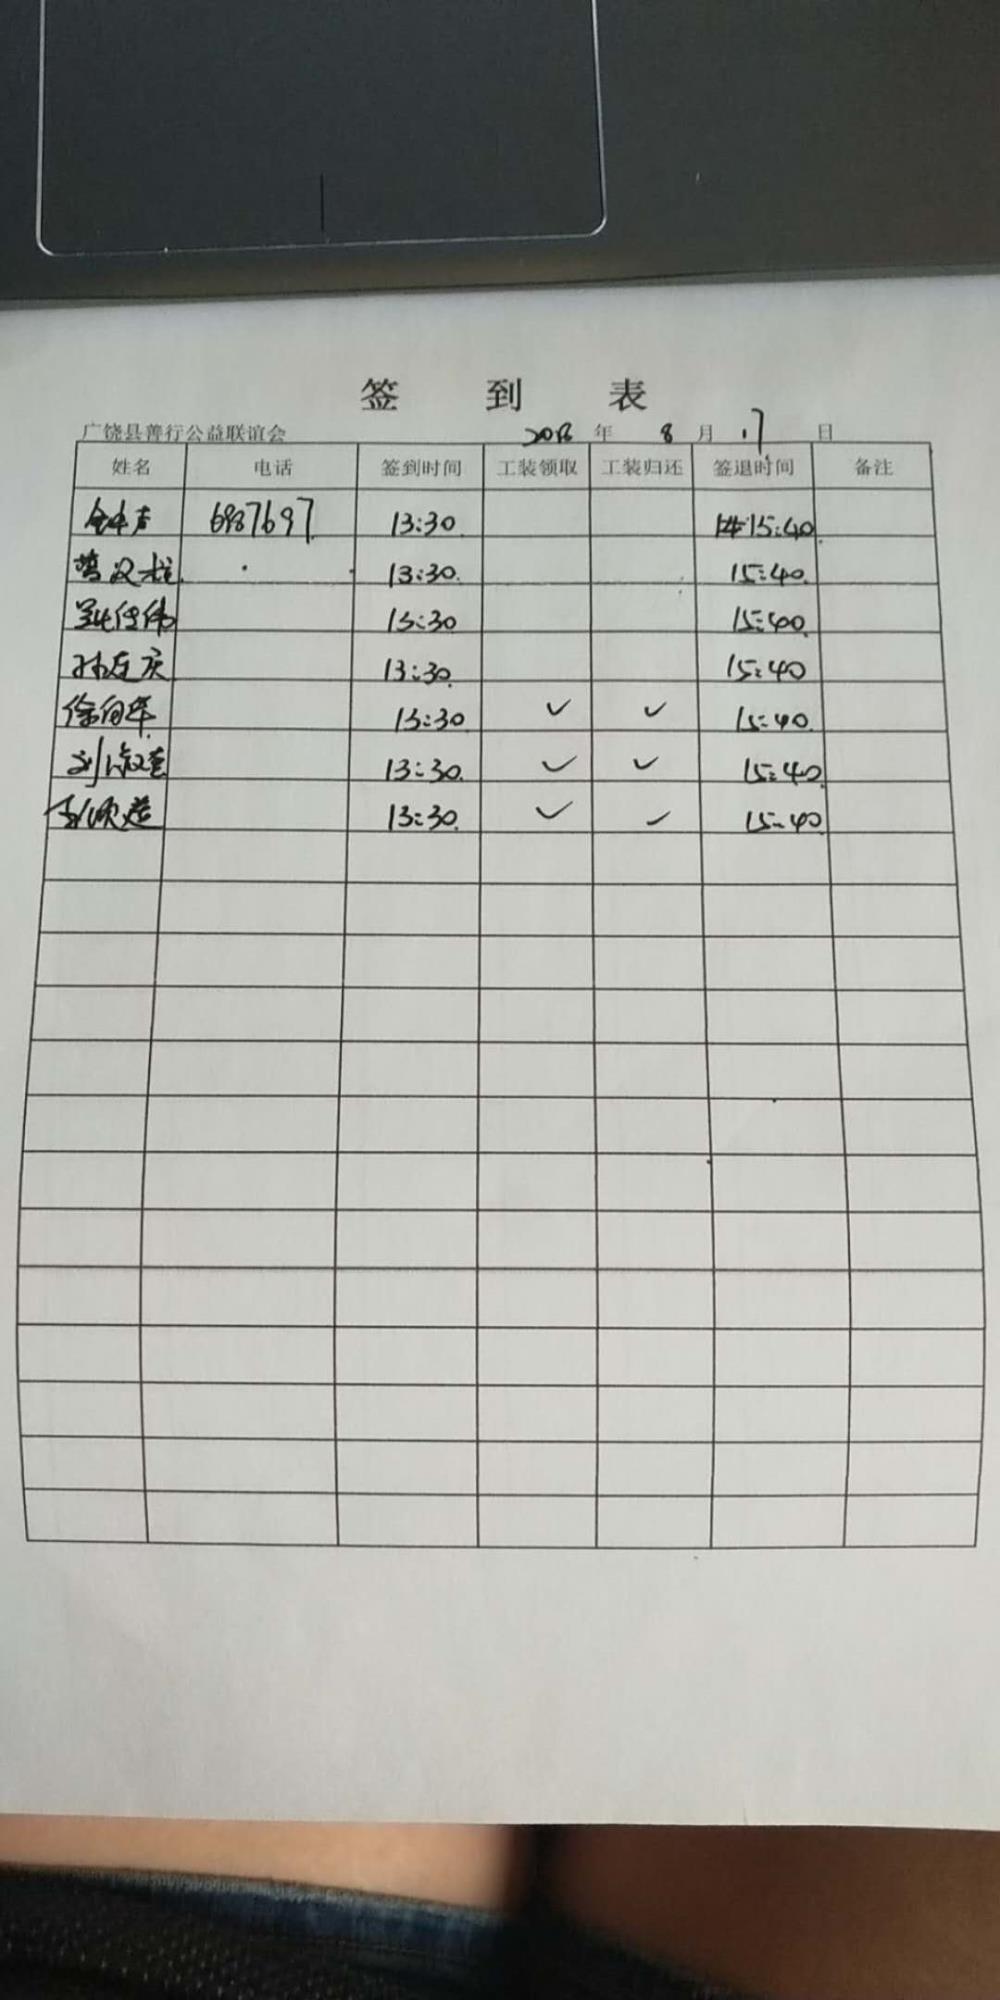 签到表
广饶县善行公益联谊会 2018年 8月 17日
姓名 电话 签到时间 工装领取 工装归还 签退时间 备注
6987697 13:30 15:40
13:30. 15:40.
13:30 15:40.
13:30. 15:40
徐向华 13:30 ✓ ✓ 15:40.
13:30. ✓ ✓ 15:40
13:30. ✓ ✓ 15:40